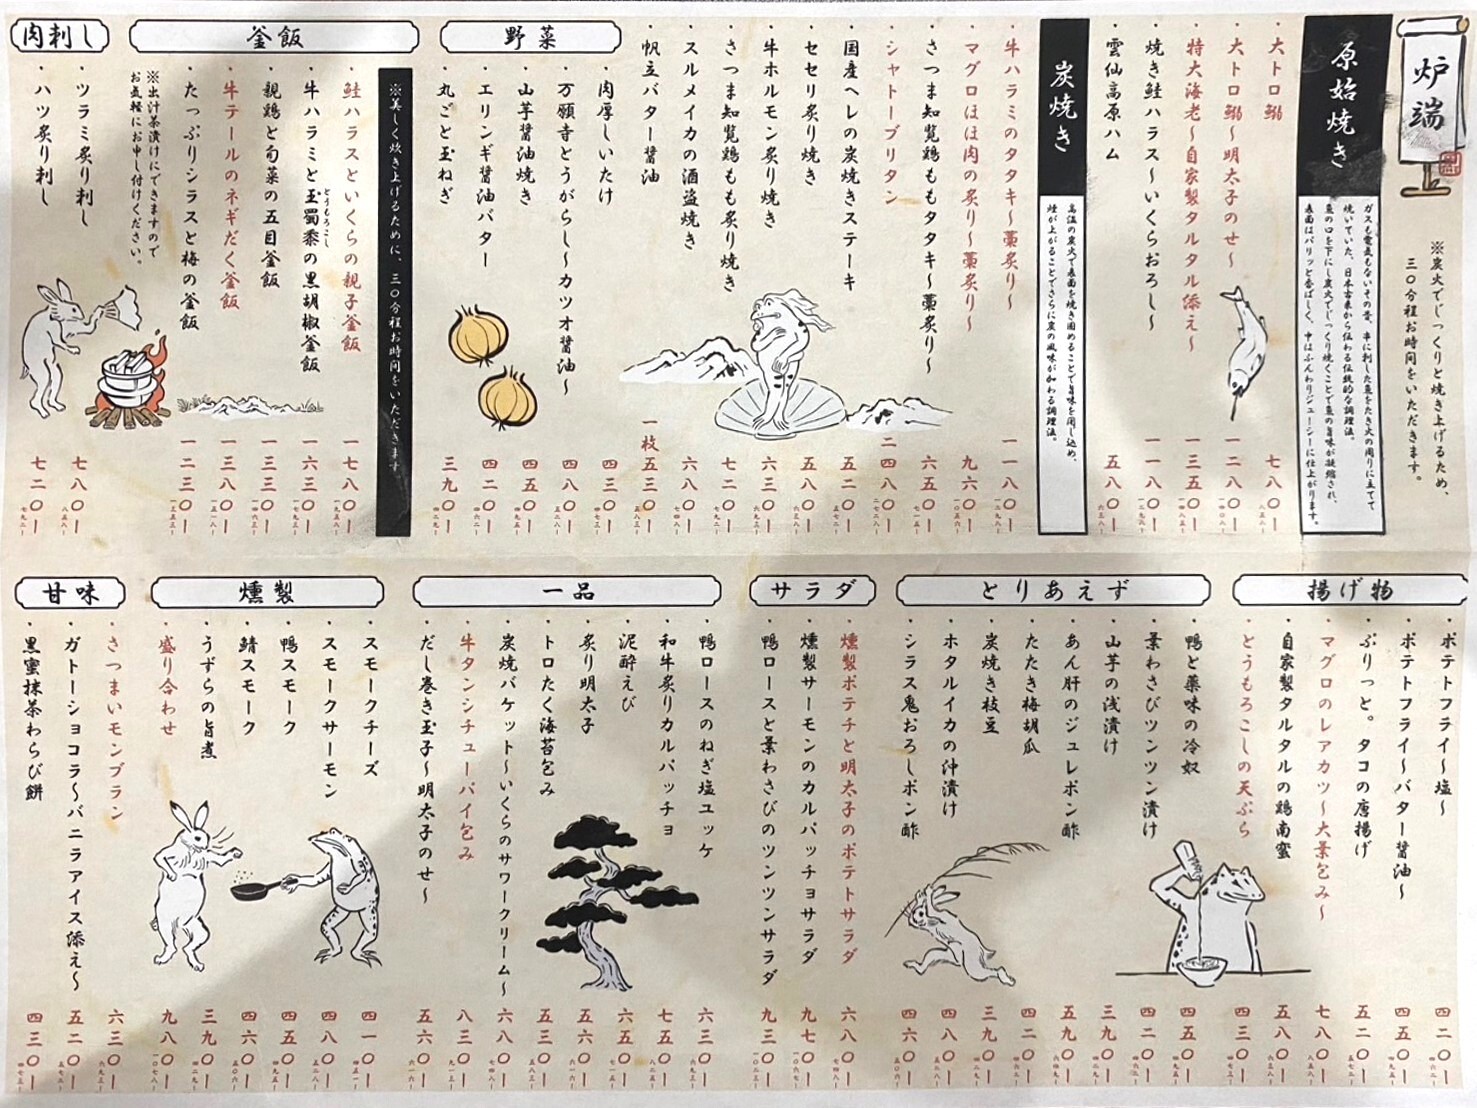 炉端
※炭火でじっくりと焼き上げるため、
三〇分程お時間をいただきます。
原始焼き
ガスも電気もないその昔、串に刺した魚をたき火の周りに立てて
焼いていた、日本古来から伝わる伝統的な調理法。
魚の口を下にし炭火でじっくり焼くことで魚の旨味が凝縮され、
表面はパリッと香ばしく、中はふんわりジューシーに仕上がります。
・大トロ鰯 七八〇ー
・大トロ鰯〜明太子のせ〜 一二八〇ー
・特大海老〜自家製タルタル添え〜 一三五〇ー
・焼き鮭ハラス〜いくらおろし〜 一一八〇ー
・雲仙高原ハム 五八〇ー
炭焼き
高温の炭火で表面を焼き固めることで旨味を閉じ込め、
煙が上がることでさらに炭の風味が加わる調理法。
・牛ハラミのタタキ〜藁炙り〜 一一八〇ー
・マグロほほ肉の炙り〜藁炙り〜 九六〇ー
・さつま知覧鶏ももタタキ〜藁炙り〜 六五〇ー
・シャトーブリタン 二四八〇ー
・国産ヘレの炭焼きステーキ 五二〇ー
・セセリ炙り焼き 五八〇ー
・牛ホルモン炙り焼き 六三〇ー
・さつま知覧鶏もも炙り焼き 七二〇ー
・スルメイカの酒盗焼き 六八〇ー
・帆立バター醤油 一枚五三〇ー
野菜
・肉厚しいたけ 四三〇ー
・万願寺とうがらし〜カツオ醤油〜 四八〇ー
・山芋醤油焼き 四五〇ー
・エリンギ醤油バター 四二〇ー
・丸ごと玉ねぎ 三九〇ー
釜飯
※美しく炊き上げるために、三〇分程お時間をいただきます
・鮭ハラスといくらの親子釜飯 一七八〇ー
・牛ハラミと玉蜀黍の黒胡椒釜飯 一六三〇ー
とうもろこし
・親鶏と旬菜の五目釜飯 一三三〇ー
・牛テールのネギだく釜飯 一三八〇ー
・たっぷりシラスと梅の釜飯 一二三〇ー
※出汁茶漬けにできますので
お気軽にお申し付けください。
肉刺し
・ツラミ炙り刺し 七八〇ー
・ハツ炙り刺し 七二〇ー
揚げ物
・ポテトフライ〜塩〜 四二〇ー
・ポテトフライ〜バター醤油〜 四五〇ー
・ぷりっと。タコの唐揚げ 五二〇ー
・マグロのレアカツ〜大葉包み〜 七八〇ー
・自家製タルタルの鶏南蛮 五八〇ー
・とうもろこしの天ぷら 四三〇ー
とりあえず
・鴨と薬味の冷奴 四五〇ー
・葉わさびツンツン漬け 四二〇ー
・山芋の浅漬け 三九〇ー
・あん肝のジュレポン酢 五九〇ー
・たたき梅胡瓜 四二〇ー
・炭焼き枝豆 三九〇ー
・ホタルイカの沖漬け 四八〇ー
・シラス鬼おろしポン酢 四六〇ー
サラダ
・燻製ポテチと明太子のポテトサラダ 六八〇ー
・燻製サーモンのカルパッチョサラダ 九七〇ー
・鴨ロースと葉わさびのツンツンサラダ 九三〇ー
一品
・鴨ロースのねぎ塩ユッケ 六三〇ー
・和牛炙りカルパッチョ 七五〇ー
・泥酔えび 六五〇ー
・炙り明太子 五六〇ー
・トロたく海苔包み 五三〇ー
・炭焼バケット〜いくらのサワークリーム〜 六八〇ー
・牛タンシチューパイ包み 八三〇ー
・だし巻き玉子〜明太子のせ〜 五六〇ー
燻製
・スモークチーズ 四一〇ー
・スモークサーモン 四八〇ー
・鴨スモーク 四五〇ー
・鯖スモーク 四六〇ー
・うずらの旨煮 三九〇ー
・盛り合わせ 九八〇ー
甘味
・さつまいモンブラン 六三〇ー
・ガトーショコラ〜バニラアイス添え〜 五二〇ー
・黒蜜抹茶わらび餅 四三〇ー